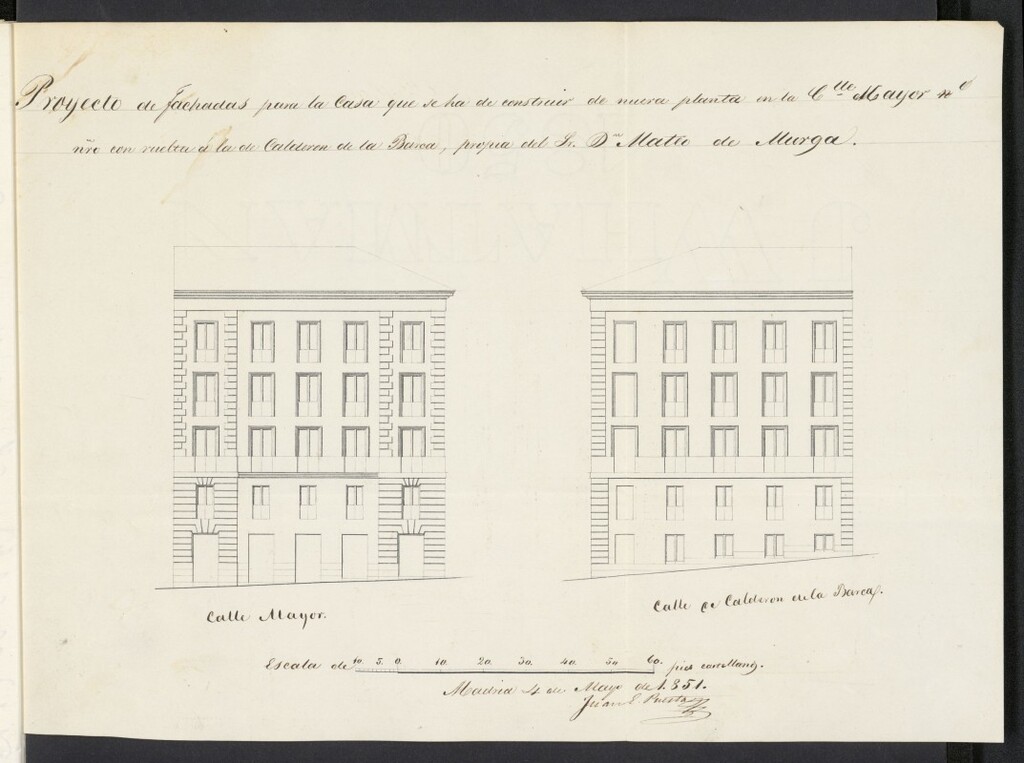 Proyecto de fachadas para la Casa que se ha de construir de nueva planta en la C.lle Mayor nº
nro con vuelta á la de Calderon de la Barca, propia del Sr. Dn Mateo de Murga.
Calle Mayor.
Calle de Calderon de la Barca.
Escala de 10. 5. 0. 10. 20. 30. 40. 50 60. pies castellanos.
Madrid 4 de Mayo de 1.851.
Juan E. Puerta